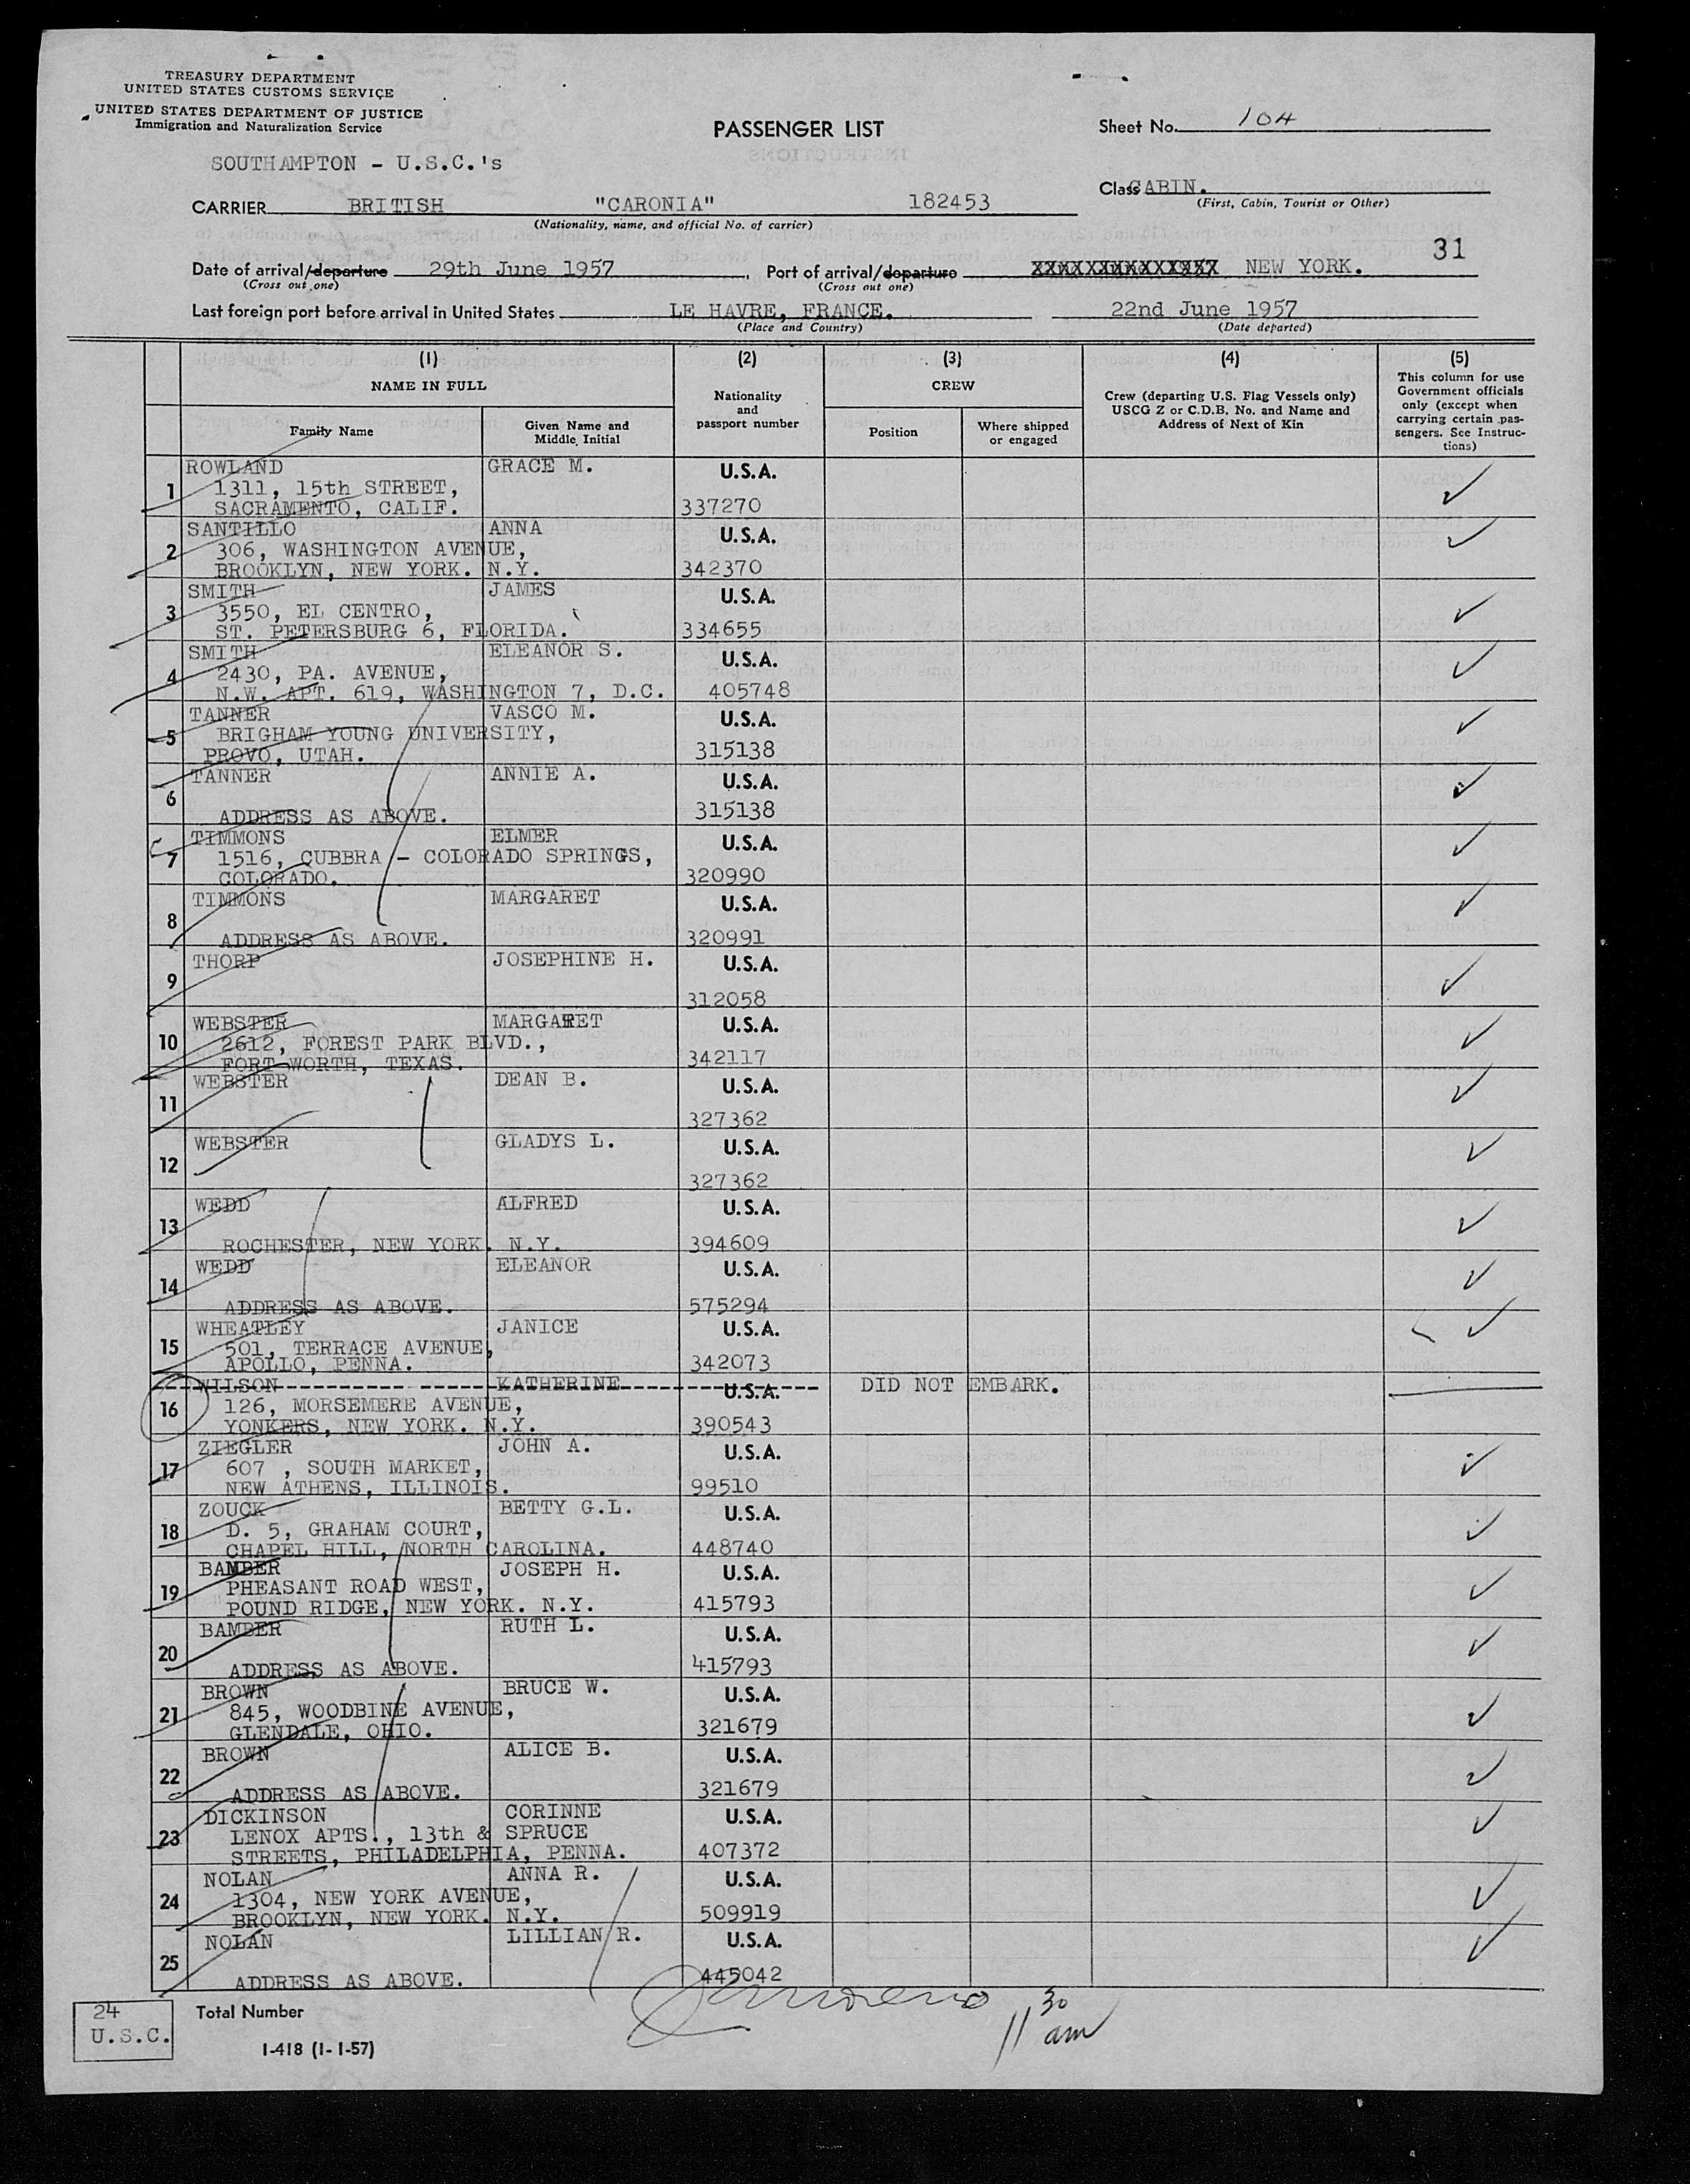 TREASURY DEPARTMENT
UNITED STATES CUSTOMS SERVICE
UNITED STATES DEPARTMENT OF JUSTICE
Immigration and Naturalization Service
PASSENGER LIST
Sheet No. 104
SOUTHAMPTON - U.S.C.'s
Class CABIN.
(First, Cabin, Tourist or Other)
CARRIER BRITISH "CARONIA" 182453
(Nationality, name, and official No. of carrier)
31
Date of arrival/departure 29th June 1957. Port of arrival/departure NEW YORK.
(Cross out one) (Cross out one)
Last foreign port before arrival in United States LE HAVRE, FRANCE. 22nd June 1957
(Place and Country) (Date departed)
(1) (2) (3) (4) (5)
NAME IN FULL Nationality and passport number CREW Crew (departing U.S. Flag Vessels only) USCG Z or C.D.B. No. and Name and Address of Next of Kin This column for use Government officials only (except when carrying certain passengers. See Instructions)
Family Name Given Name and Middle Initial Position Where shipped or engaged
1 ROWLAND GRACE M. U.S.A.
1311, 15th STREET,
SACRAMENTO, CALIF. 337270
2 SANTILLO ANNA U.S.A.
306, WASHINGTON AVENUE,
BROOKLYN, NEW YORK. N.Y. 342370
3 SMITH JAMES U.S.A.
3550, EL CENTRO,
ST. PETERSBURG 6, FLORIDA. 334655
4 SMITH ELEANOR S. U.S.A.
2430, PA. AVENUE,
N.W. APT. 619, WASHINGTON 7, D.C. 405748
5 TANNER VASCO M. U.S.A.
BRIGHAM YOUNG UNIVERSITY,
PROVO, UTAH. 315138
6 TANNER ANNIE A. U.S.A.
ADDRESS AS ABOVE. 315138
7 TIMMONS ELMER U.S.A.
1516, CUBBRA - COLORADO SPRINGS,
COLORADO. 320990
8 TIMMONS MARGARET U.S.A.
ADDRESS AS ABOVE. 320991
9 THORP JOSEPHINE H. U.S.A.
312058
10 WEBSTER MARGARET U.S.A.
2612, FOREST PARK BLVD.,
FORT WORTH, TEXAS. 342117
11 WEBSTER DEAN B. U.S.A.
327362
12 WEBSTER GLADYS L. U.S.A.
327362
13 WEDD ALFRED U.S.A.
ROCHESTER, NEW YORK. N.Y. 394609
14 WEDD ELEANOR U.S.A.
ADDRESS AS ABOVE. 575294
15 WHEATLEY JANICE U.S.A.
501, TERRACE AVENUE,
APOLLO, PENNA. 342073
16 WILSON KATHERINE U.S.A. DID NOT EMBARK.
126, MORSEMERE AVENUE,
YONKERS, NEW YORK. N.Y. 390543
17 ZIEGLER JOHN A. U.S.A.
607 , SOUTH MARKET,
NEW ATHENS, ILLINOIS. 99510
18 ZOUCK BETTY G.L. U.S.A.
D. 5, GRAHAM COURT,
CHAPEL HILL, NORTH CAROLINA. 448740
19 BAMBER JOSEPH H. U.S.A.
PHEASANT ROAD WEST,
POUND RIDGE, NEW YORK. N.Y. 415793
20 BAMBER RUTH L. U.S.A.
ADDRESS AS ABOVE. 415793
21 BROWN BRUCE W. U.S.A.
845, WOODBINE AVENUE,
GLENDALE, OHIO. 321679
22 BROWN ALICE B. U.S.A.
ADDRESS AS ABOVE. 321679
23 DICKINSON CORINNE U.S.A.
LENOX APTS., 13th & SPRUCE
STREETS, PHILADELPHIA, PENNA. 407372
24 NOLAN ANNA R. U.S.A.
1304, NEW YORK AVENUE,
BROOKLYN, NEW YORK. N.Y. 509919
25 NOLAN LILLIAN R. U.S.A.
ADDRESS AS ABOVE. 445042
24 Total Number
U.S.C.
11 30 am
I-418 (1-1-57)